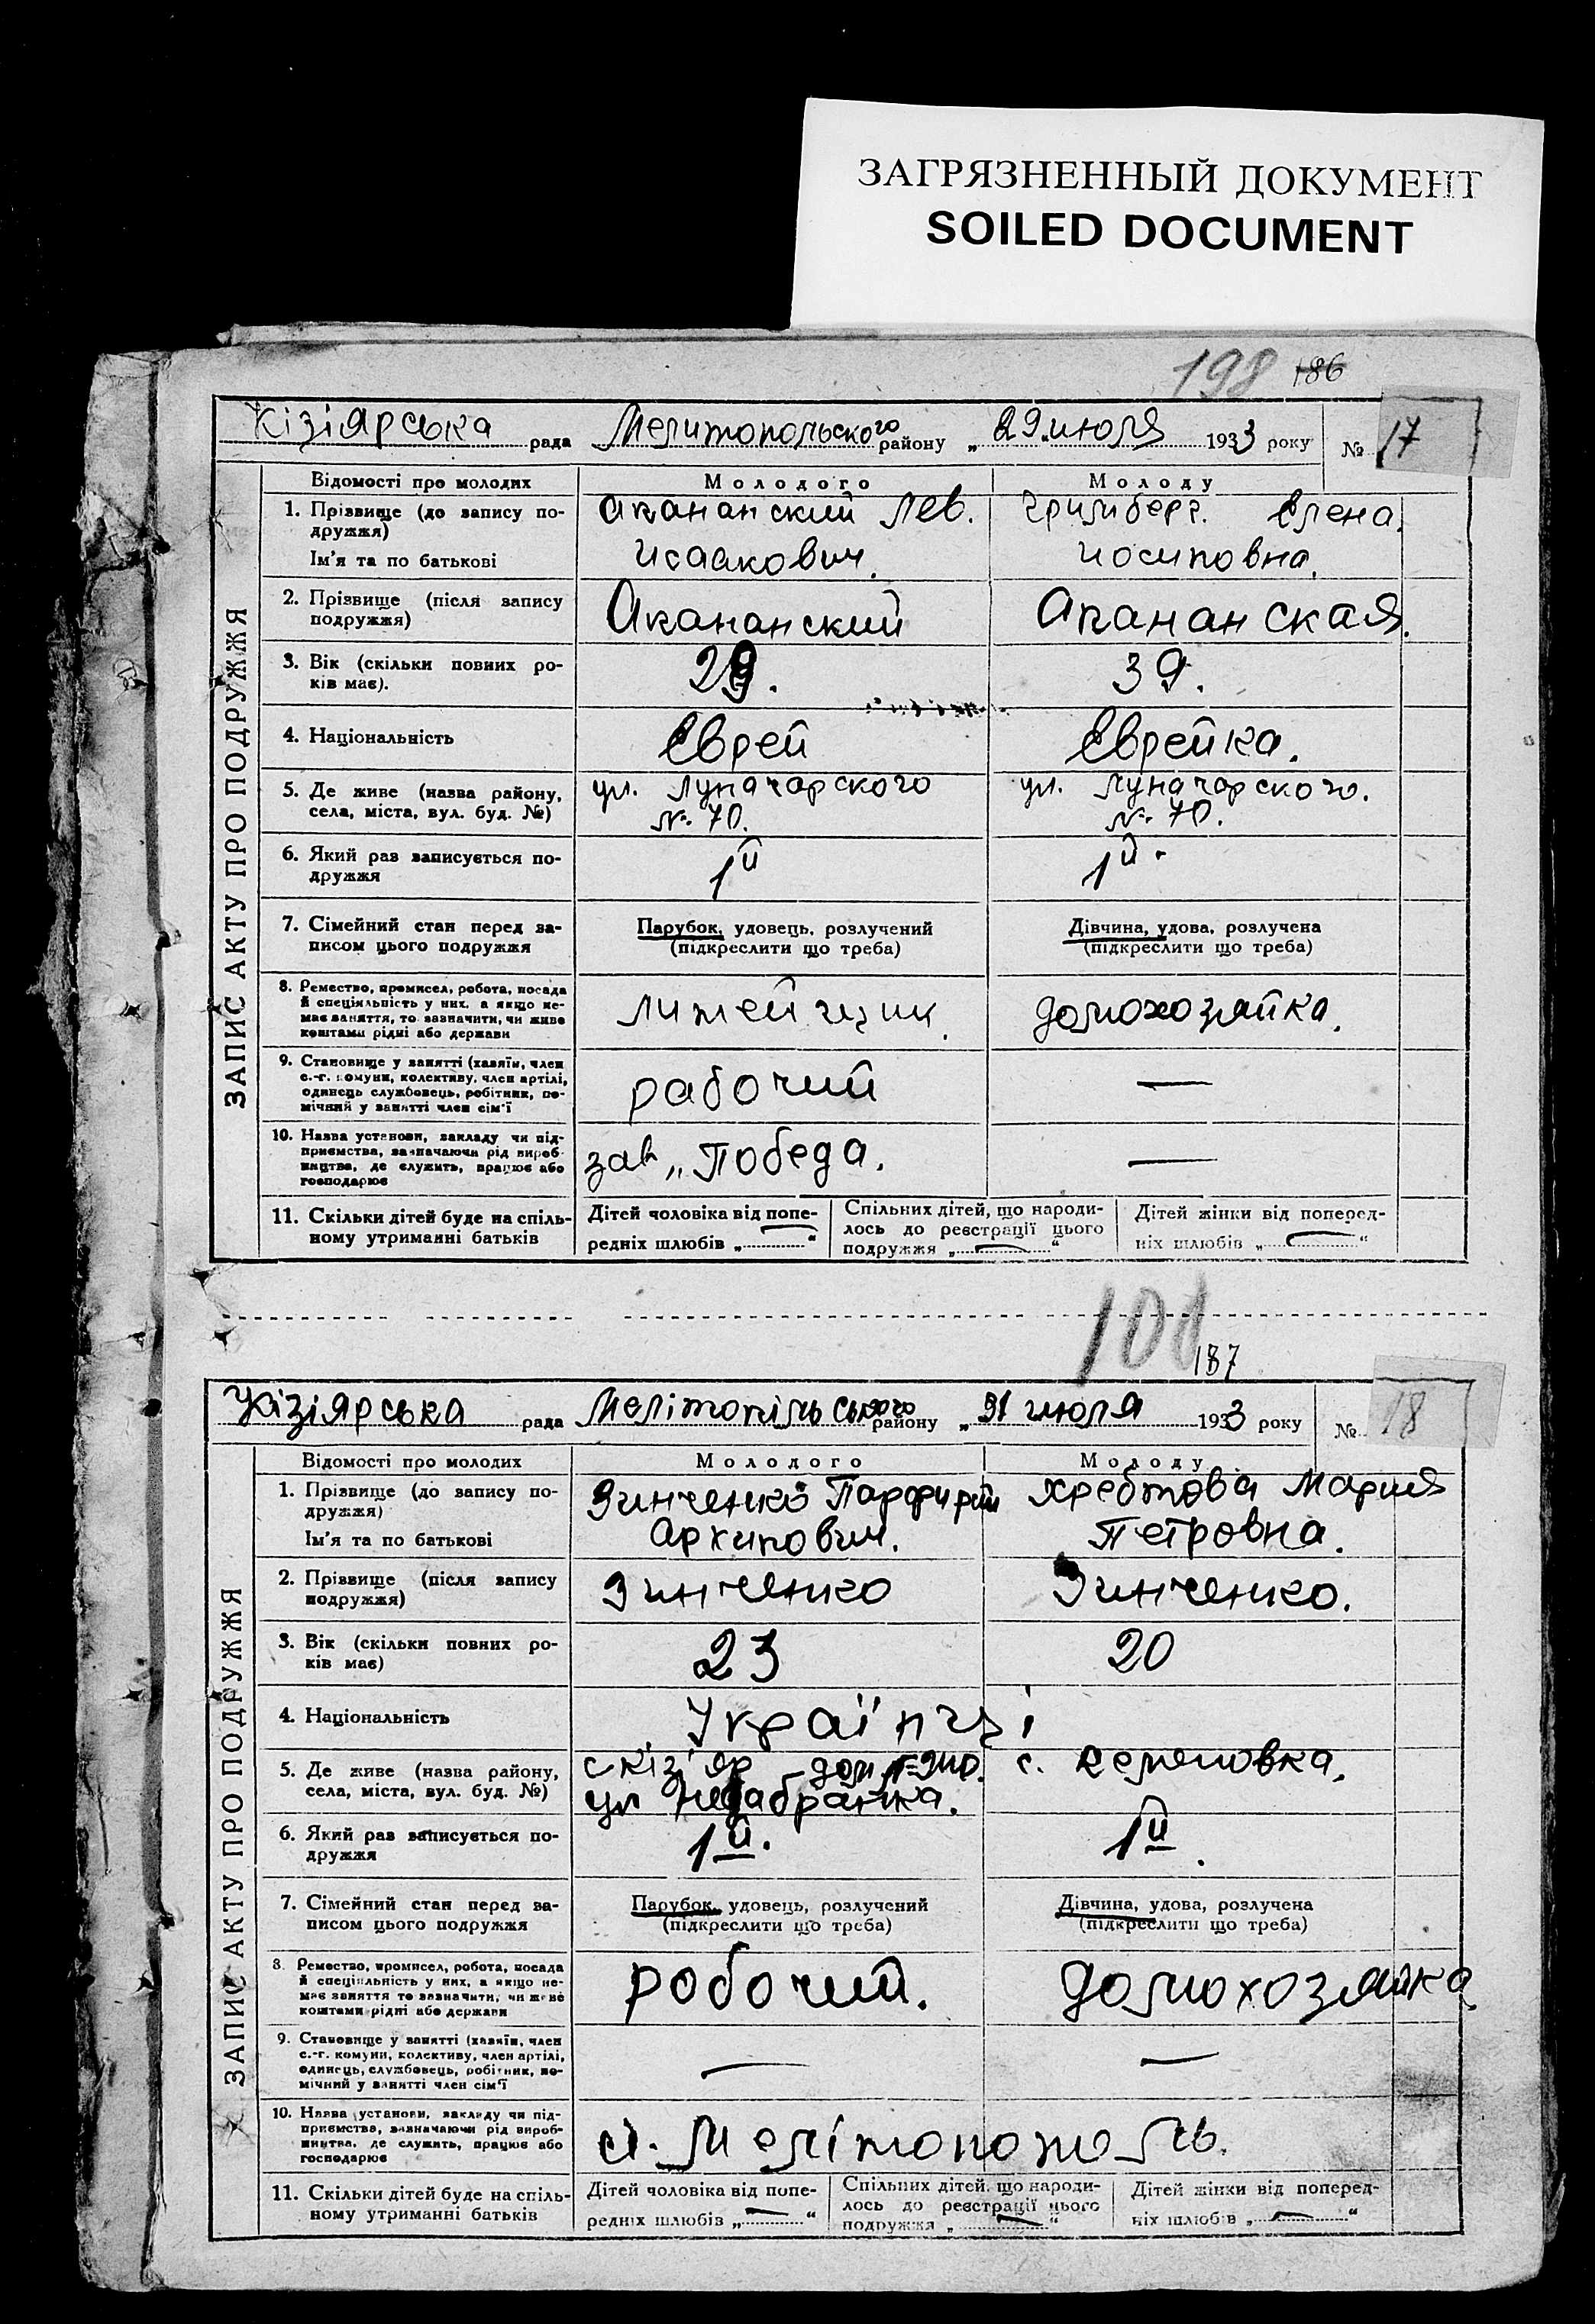 ЗАГРЯЗНЕННЫЙ ДОКУМЕНТ
SOILED DOCUMENT
198 186
Кізіярська рада Мелитопольского району „29 июля 1933 року № 17
ЗАПИС АКТУ ПРО ПОДРУЖЖЯ
Відомості про молодих Молодого Молоду
1. Прізвище (до запису по- Аканански​й Лев. Гримберг. Елена.
дружжя)
Ім'я та по батькові Исаакович. Иосиповна.
2. Прізвище (після запису Акананский Акананская.
подружжя)
3. Вік (скільки повних ро- 29. 39.
ків має).
4. Національність Еврей Еврейка.
5. Де живе (назва району, ул. Луначарского ул. Луначарского.
села, міста, вул. буд. №) № 70. № 70.
6. Який раз записується по- 1й 1й.
дружжя
7. Сімейний стан перед за- Парубок, удовець, розлучений Дівчина, удова, розлучена
писом цього подружжя (підкреслити що треба) (підкреслити що треба)
8. Ремество, промисел, робота, посада
й спеціяльність у них, а якщо не- домохозяйка.
має заняття, то зазначити, чи живе
коштами рідні або держави
9. Становище у занятті (хазяїн, член
с.-г. комуни, колективу, член артілі, рабочий —
одинець службовець, робітник, по-
мічний у занятті член сім'ї
10. Назва установи, закладу чи під-
приємства, зазначаючи рід вироб- зав „Победа. —
ництва, де служить, працює або
господарює
11. Скільки дітей буде на спіль- Дітей чоловіка від попе- Спільних дітей, що народи- Дітей жінки від поперед-
ному утриманні батьків редніх шлюбів „—“ лось до реєстрації цього ніх шлюбів „—“
подружжя „—“
101
187
Кізіярська рада Мелітопільського району „31 июля 1933 року № 18
ЗАПИС АКТУ ПРО ПОДРУЖЖЯ
Відомості про молодих Молодого Молоду
1. Прізвище (до запису по- Зинченко Парфирий Хребтова Мария
дружжя)
Ім'я та по батькові Архипович. Петровна.
2. Прізвище (після запису Зинченко Зинченко.
подружжя)
3. Вік (скільки повних ро- 23 20
ків має)
4. Національність Українці
5. Де живе (назва району, с кізіяр дом с.
села, міста, вул. буд. №) ул
6. Який раз записується по- 1й. 1й.
дружжя
7. Сімейний стан перед за- Парубок, удовець, розлучений Дівчина, удова, розлучена
писом цього подружжя (підкреслити що треба) (підкреслити що треба)
8. Ремество, промисел, робота, посада
й спеціяльність у них, а якщо не- робочий. домохозяйка
має заняття то зазначити, чи живе
коштами рідні або держави
9. Становище у занятті (хазяїн, член
с.-г. комуни, колективу, член артілі, — —
одинець, службовець, робітник, по-
мічний у занятті член сім'ї
10. Назва установи, закладу чи під-
приємства, зазначаючи рід вироб-
ництва, де служить, працює або
господарює
11. Скільки дітей буде на спіль- Дітей чоловіка від попе- Спільних дітей, що народи- Дітей жінки від поперед-
ному утриманні батьків редніх шлюбів „—“ лось до реєстрації цього ніх шлюбів „—“
подружжя „—“